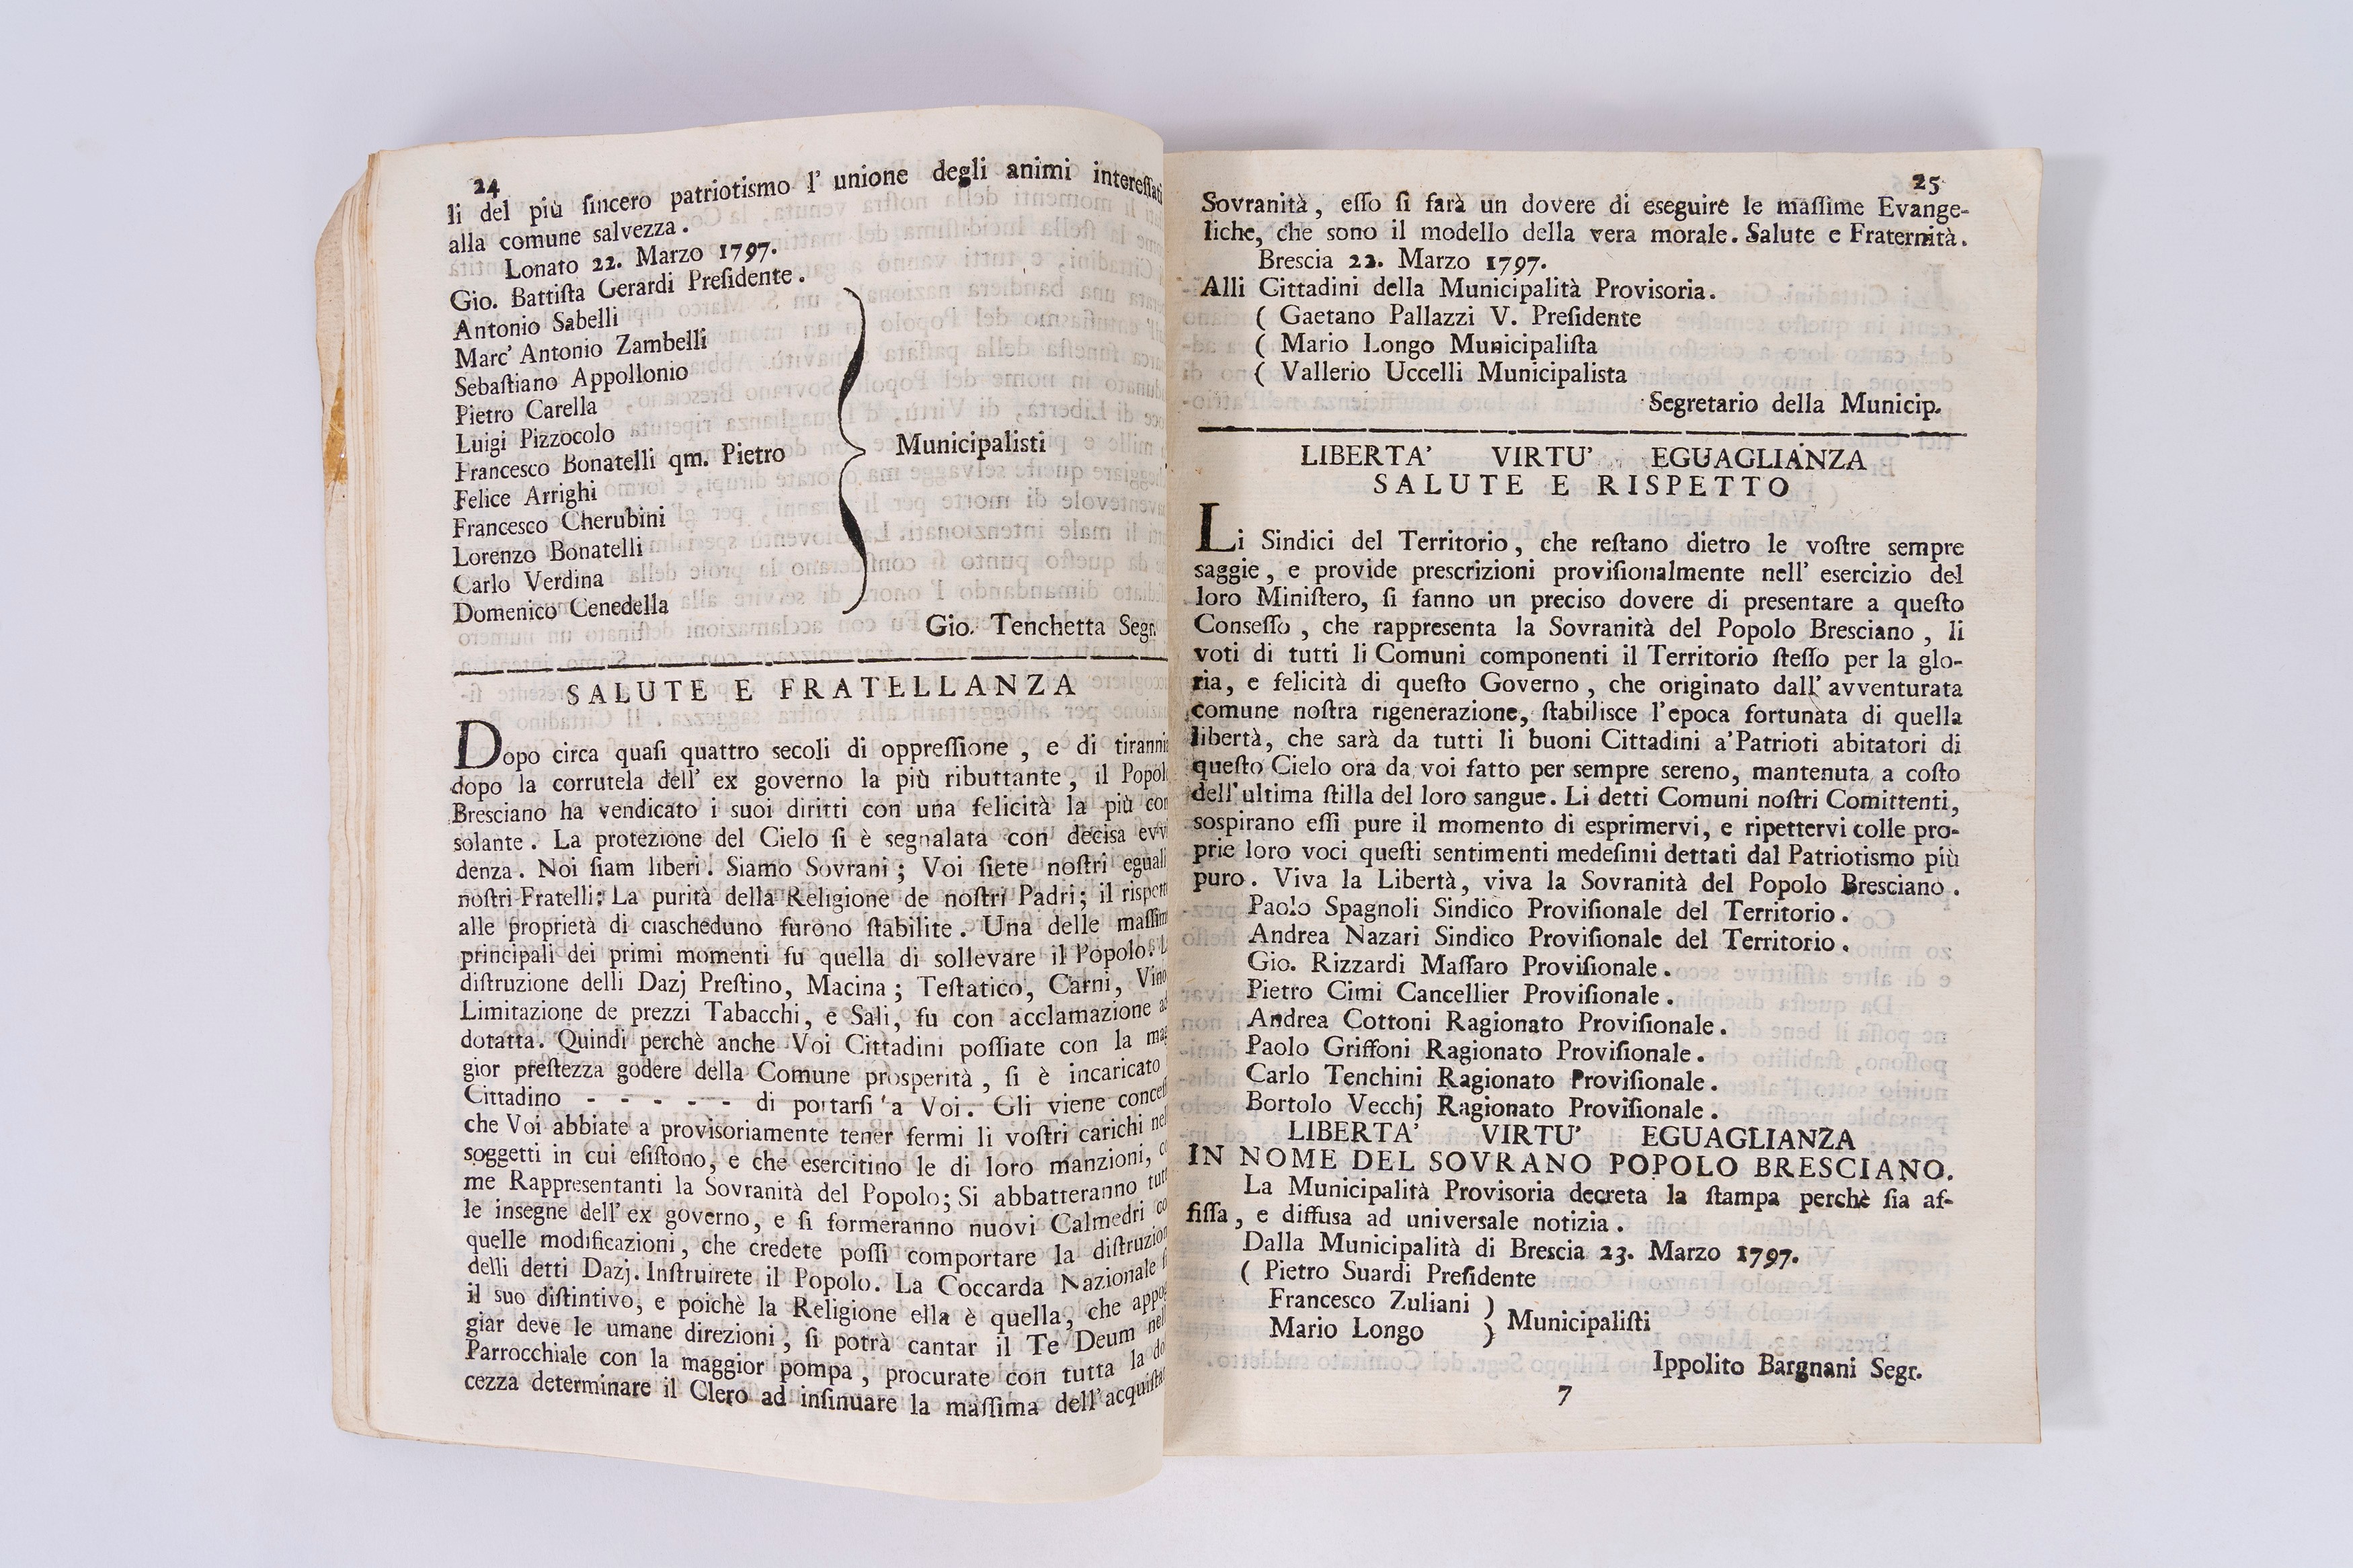 24
li del più ſincero patriotismo l' unione degli animi intereſſati
alla comune salvezza.
Lonato 22. Marzo 1797.
Gio. Battiſta Gerardi Preſidente.
Antonio Sabelli
Marc' Antonio Zambelli
Sebaſtiano Appollonio
Pietro Carella
Luigi Pizzocolo
Francesco Bonatelli qm. Pietro
Felice Arrighi
Francesco Cherubini
Lorenzo Bonatelli
Carlo Verdina
Domenico Cenedella
Municipalisti
Gio. Tenchetta Segr.
SALUTE E FRATELLANZA
Dopo circa quaſi quattro secoli di oppreſſione, e di tirannia
dopo la corrutela dell' ex governo la più ributtante, il Popol
Bresciano ha vendicato i suoi diritti con una felicità la più con
solante. La protezione del Cielo ſi è segnalata con decisa evvi
denza. Noi ſiam liberi. Siamo Sovrani; Voi ſiete noſtri eguali
noſtri Fratelli: La purità della Religione de noſtri Padri; il rispett
alle proprietà di ciascheduno furono ſtabilite. Una delle maſſim
principali dei primi momenti fu quella di sollevare il Popolo. L
diſtruzione delli Dazj Preſtino, Macina; Teſtatico, Carni, Vino
Limitazione de prezzi Tabacchi, e Sali, fu con acclamazione ad
dotatta. Quindi perchè anche Voi Cittadini poſſiate con la mag
gior preſtezza godere della Comune prosperità, ſi è incaricato
Cittadino - - - - - di portarſi a Voi. Gli viene conceſſ
che Voi abbiate a provisoriamente tener fermi li voſtri carichi nel
soggetti in cui eſiſtono, e che esercitino le di loro manzioni, co
me Rappresentanti la Sovranità del Popolo; Si abbatteranno tutt
le insegne dell' ex governo, e ſi formeranno nuovi Calmedri co
quelle modificazioni, che credete poſſi comportare la diſtruzion
delli detti Dazj. Inſtruirete il Popolo. La Coccarda Nazionale ſ
il suo diſtintivo, e poichè la Religione ella è quella, che appog
giar deve le umane direzioni, ſi potrà cantar il Te Deum nell
Parrocchiale con la maggior pompa, procurate con tutta la dol
cezza determinare il Clero ad inſinuare la maſſima dell' acquiſtat
25
Sovranità, eſſo ſi farà un dovere di eseguire le maſſime Evange-
liche, che sono il modello della vera morale. Salute e Fraternità.
Brescia 22. Marzo 1797.
Alli Cittadini della Municipalità Provisoria.
( Gaetano Pallazzi V. Preſidente
( Mario Longo Municipaliſta
( Vallerio Uccelli Municipalista
Segretario della Municip.
LIBERTA' VIRTU' EGUAGLIANZA
SALUTE E RISPETTO
Li Sindici del Territorio, che reſtano dietro le voſtre sempre
saggie, e provide prescrizioni proviſionalmente nell' esercizio del
loro Miniſtero, ſi fanno un preciso dovere di presentare a queſto
Conseſſo, che rappresenta la Sovranità del Popolo Bresciano, li
voti di tutti li Comuni componenti il Territorio ſteſſo per la glo-
ria, e felicità di queſto Governo, che originato dall' avventurata
comune noſtra rigenerazione, ſtabilisce l'epoca fortunata di quella
libertà, che sarà da tutti li buoni Cittadini a'Patrioti abitatori di
queſto Cielo ora da voi fatto per sempre sereno, mantenuta a coſto
dell'ultima ſtilla del loro sangue. Li detti Comuni noſtri Comittenti,
sospirano eſſi pure il momento di esprimervi, e ripettervi colle pro-
prie loro voci queſti sentimenti medeſimi dettati dal Patriotismo più
puro. Viva la Libertà, viva la Sovranità del Popolo Bresciano.
Paolo Spagnoli Sindico Proviſionale del Territorio.
Andrea Nazari Sindico Proviſionale del Territorio.
Gio. Rizzardi Maſſaro Proviſionale.
Pietro Cimi Cancellier Proviſionale.
Andrea Cottoni Ragionato Proviſionale.
Paolo Griffoni Ragionato Proviſionale.
Carlo Tenchini Ragionato Proviſionale.
Bortolo Vecchj Ragionato Proviſionale.
LIBERTA' VIRTU' EGUAGLIANZA
IN NOME DEL SOVRANO POPOLO BRESCIANO.
La Municipalità Provisoria decreta la ſtampa perchè ſia af-
fiſſa, e diffusa ad universale notizia.
Dalla Municipalità di Brescia 23. Marzo 1797.
( Pietro Suardi Preſidente
Francesco Zuliani )
Mario Longo ) Municipaliſti
Ippolito Bargnani Segr.
7